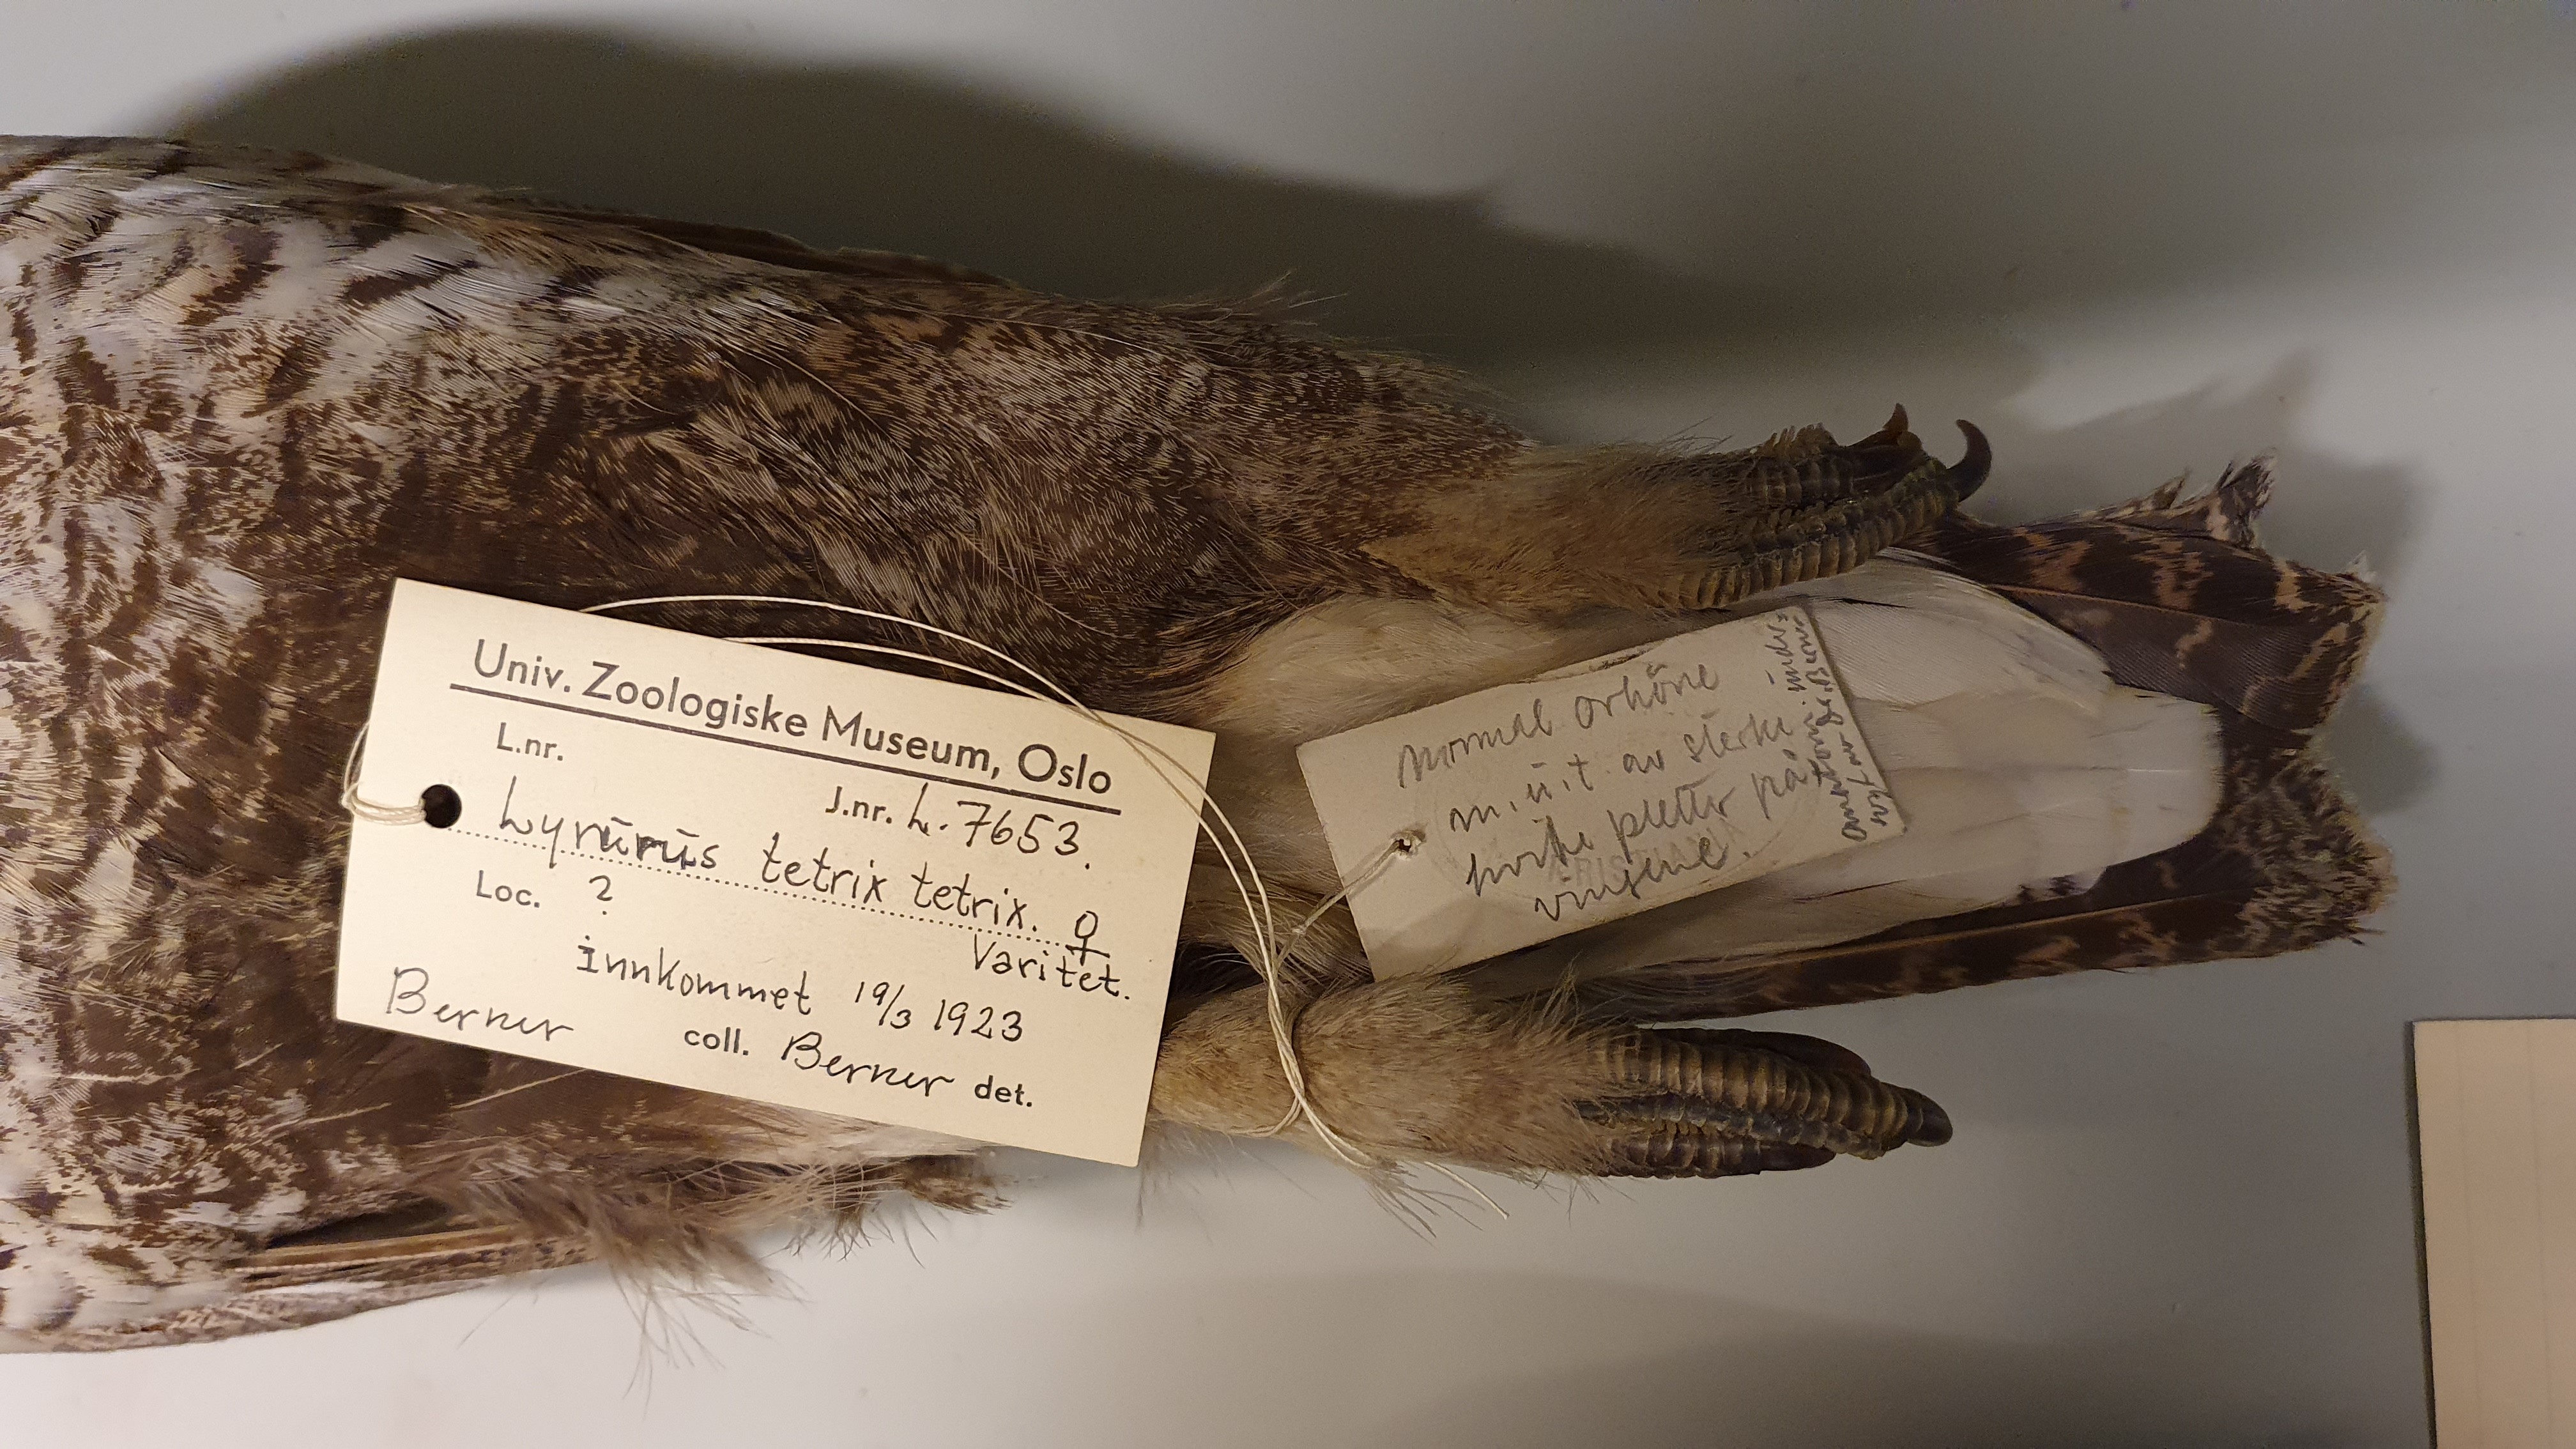 Univ. Zoologiske Museum, Oslo
L.nr.
J.nr. L. 7653.
Lyrurus tetrix tetrix. ♀
Varitet.
Loc. ?
innkommet 19/3 1923
Berner coll. Berner det.
Normal orhöne
m. u. t. av sterke
hvite pletter på
vingene.
anatom. unders.
av Berner